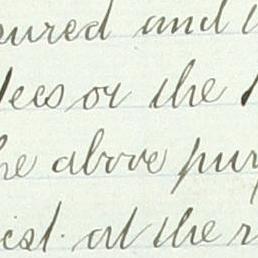 oured and
lees or the
he above pur
ist. at the r